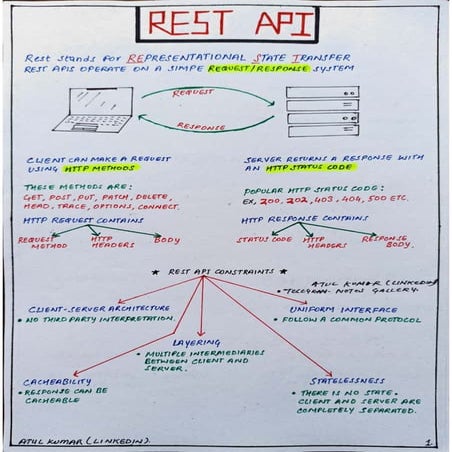 REST API
REST STANDS FOR REPRESENTATIONAL STATE TRANSFER
REST APIS OPERATE ON A SIMPE REQUEST/RESPONSE SYSTEM
REQUEST
RESPONSE
CLIENT CAN MAKE A REQUEST
USING HTTP METHODS
THESE METHODS ARE:
GET, POST, PUT, PATCH, DELETE,
HEAD, TRACE, OPTIONS, CONNECT.
HTTP REQUEST CONTAINS
REQUEST
METHOD
HTTP
HEADERS
BODY
SERVER RETURNS A RESPONSE WITH
AN HTTP STATUS CODE
POPULAR HTTP STATUS CODE:
EX, 200, 202, 403, 404, 500 ETC.
HTTP RESPONSE CONTAINS
STATUS CODE
HTTP
HEADERS
RESPONSE
BODY.
★ REST API CONSTRAINTS ★
ATUL KUMAR (LINKEDIN)
• TELEGRAM - NOTES GALLERY.
CLIENT-SERVER ARCHITECTURE
• NO THIRD PARTY INTERPRETATION.
UNIFORM INTERFACE
• FOLLOW A COMMON PROTOCOL
LAYERING
• MULTIPLE INTERMEDIARIES
BETWEEN CLIENT AND
SERVER.
CACHEABILITY
• RESPONSE CAN BE
CACHEABLE
STATELESSNESS
• THERE IS NO STATE.
CLIENT AND SERVER ARE
COMPLETELY SEPARATED.
ATUL KUMAR (LINKEDIN).
1